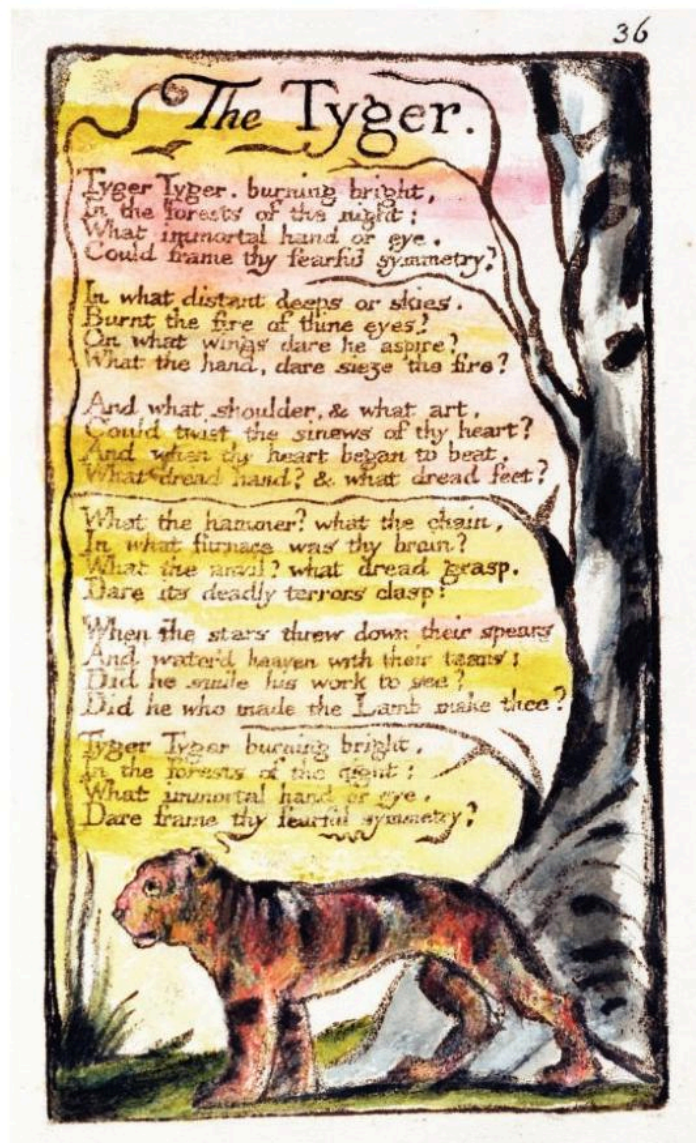 36
The Tyger.
Tyger Tyger. burning bright,
In the forests of the night;
What immortal hand or eye.
Could frame thy fearful symmetry?
In what distant deeps or skies.
Burnt the fire of thine eyes?
On what wings dare he aspire?
What the hand, dare sieze the fire?
And what shoulder, & what art,
Could twist the sinews of thy heart?
And when thy heart began to beat,
What dread hand? & what dread feet?
What the hammer? what the chain,
In what furnace was thy brain?
What the anvil? what dread grasp.
Dare its deadly terrors clasp!
When the stars threw down their spears
And water'd heaven with their tears;
Did he smile his work to see?
Did he who made the Lamb make thee?
Tyger Tyger burning bright,
In the forests of the night;
What immortal hand or eye.
Dare frame thy fearful symmetry?